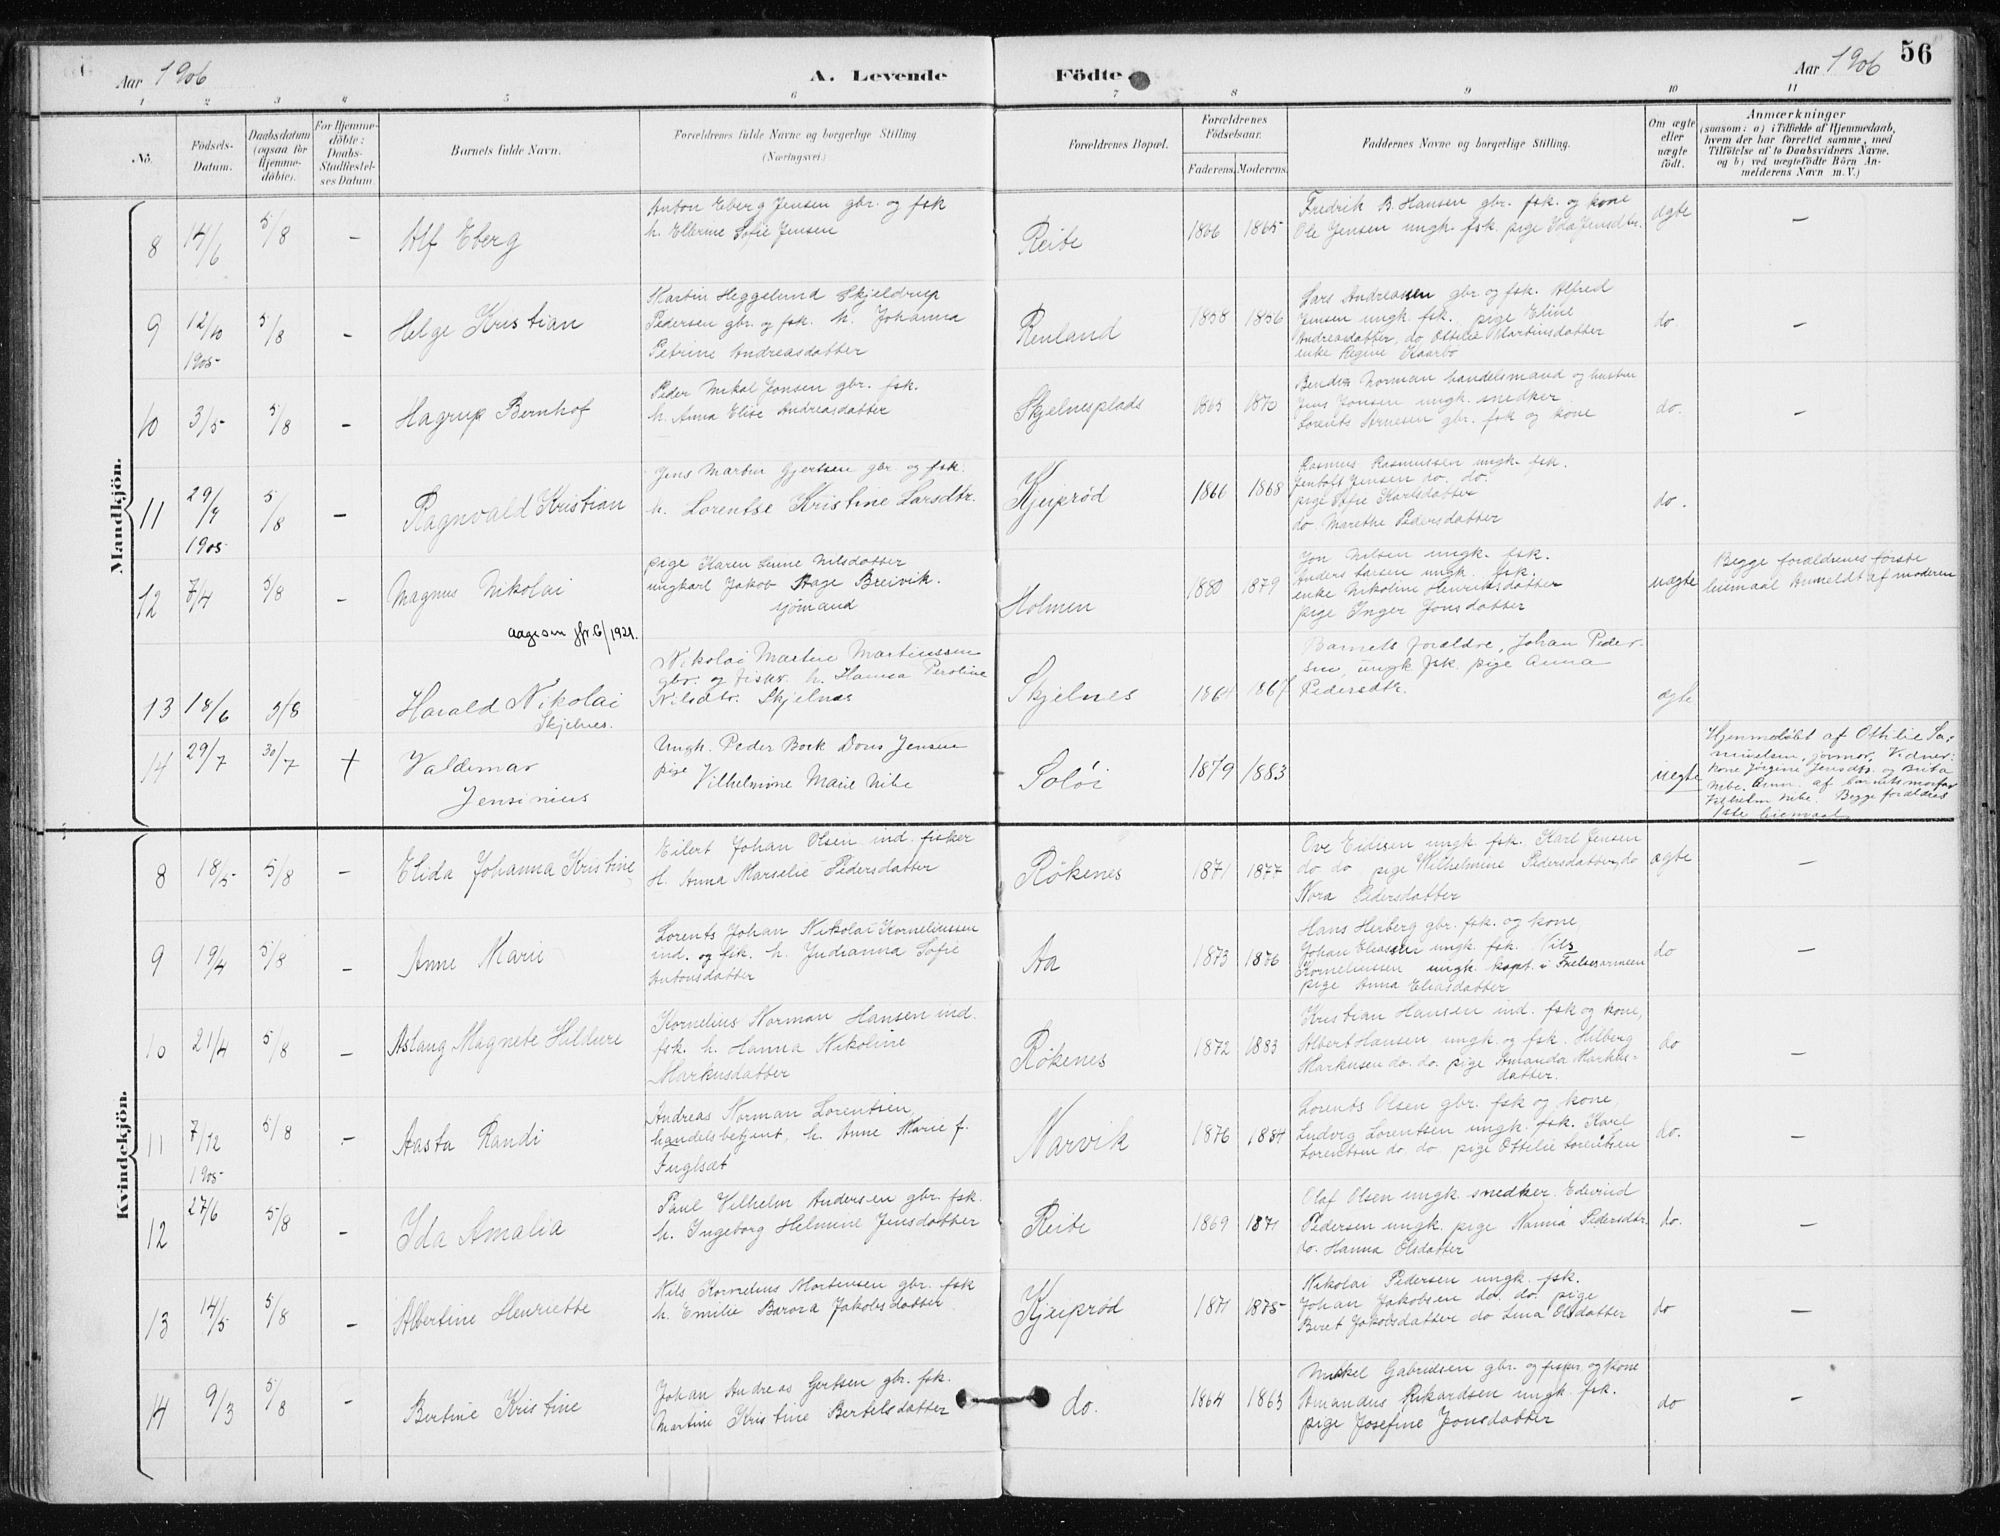 56
Aar 1906
A. Levende
Födte
Aar 1906
1 2 3 4 5 6 7 8 9 10 11
No.
Födsels-
Datum.
Daabsdatum
(ogsaa for
Hjemme-
döbte).
For Hjemme-
döbte:
Daabs-
Stadfæstel-
ses Datum.
Barnets fulde Navn.
Forældrenes fulde Navne og borgerlige Stilling
(Næringsvei.)
Forældrenes Bopæl.
Forældrenes
Födselsaar.
Faderens. Moderens.
Faddernes Navne og borgerlige Stilling.
Om ægte
eller
uægte
födt.
Anmærkninger
(saasom: a) i Tilfælde af Hjemmedaab,
hvem der har forrettet samme, med
Tilföielse af to Daabsvidners Navne,
og b) ved uægtefödte Börn An-
melderens Navn m. V.)
Mandkjön.
8 14/6 5/8 - Alf Eberg
Anton Eberg Jensen gbr. og fsk
h. Ellerine Sofie Jensen
Reite 1866 1865
Fredrik B. Hansen gbr. fsk. og kone
Ole Jensen ungk. fsk. pige Ida Jensdtr.
ægte -
9 12/10 1905 5/8 - Helge Kristian
Martin Heggelund Skjeldrup
Pedersen gbr. og fsk. h. Johanna
Petrine Andreasdatter
Renland 1858 1856
Lars Andreassen gbr og fsk. Alfred
Jensen ungk. fsk. pige Eline
Andreasdatter, do Ottilie Martinsdatter
enke Regine Kaarbø
do -
10 3/5 5/8 - Hagrup Bernhof
Peder Mikal Jonsen gbr. fsk.
h. Anna Elise Andreasdatter
Skjelnesplads 1865 1870
Norman handelsmand og hustru
Jens Jonsen ungk. snedker
Lorents Arnesen gbr. fsk og kone
do. -
11 29/7 1905 5/8 - Ragnvald Kristian
Jens Martin Gjertsen gbr. og fsk.
h. Lorentse Kristine Larsdtr.
Kjeiprød 1866 1868
Rasmus Rasmussen ungk. fsk.
Jentoft Jensen do. do.
pige Sofie Karlsdatter
do. Marethe Pedersdatter
do. -
12 7/4 5/8 - Magnus Nikolai
Aagesen jfr. 6/1921.
pige Karen Nilsdatter
ungkarl Jakob Aage Breivik.
Holmen 1880 1879
Jon Nilsen ungk. fsk.
Anders Larsen ungk. fsk.
enke Nikoline Henriksdatter
pige Inger Jonsdatter
uægte
Begge forældrenes første
leiemaal Anmeldt af moderen
13 18/6 5/8 Harald Nikolai
Skjelnes.
Nikolai Martin Martinussen
gbr. og fisker. h. Hansa Peroline
Nilsdtr. Skjelnes
Skjelnes 1864 1867
Barnets forældre, Johan Peder-
sen, ungk fsk. pige Anna
Pedersdtr.
ægte
14 29/7 30/7 + Valdemar
Jensinius
Ungk. Peder Bork Dons Jensen
pige Vilhelmine Marie Nibe
Soløi 1879 1883
uægte
Hjemmedøbt af Othilie Sa-
muelsen, jormor, Vidner:
kone Jørgine Jensdtr. og Brita
Nibe. Anm. af barnets morfar
Vilhelm Nibe. Begge forældres
1ste leiemaal
Kvindekjön.
8 18/5 5/8 - Elida Johanna Kristine
Eilert Johan Olsen ind. fisker
H. Anna Marselie Pedersdatter
Rökenes 1871 1877
Ove Eidisen ungk. fsk. Karl Jensen
do do pige Wilhelmine Pedersdatter, do
Nora Pedersdatter
ægte -
9 19/4 5/8 - Anne Marie
Lorents Johan Nikolai Korneliussen
ind. og fsk. h. Judianna Sofie
Antonsdatter
Aa 1873 1876
Hans Herberg gbr. fsk. og kone
Johan Eliassen ungk. fsk. Nils
Korneliussen ungk. kapt. i Frelsesarmeen
pige Anna Eliasdatter
do -
10 21/4 5/8 - Aslaug Magnete Hildure
Kornelius Norman Hansen ind.
fsk. h. Hanna Nikoline
Markusdatter
Rökenes 1872 1883
Kristian Hansen ind. fsk og kone,
Albert Hansen ungk. og fsk. Hilberg
Markusen do. do. pige Amanda Markus-
datter.
do -
11 7/12 1905 5/8 - Aasta Randi
Andreas Norman Lorentsen,
handelsbetjent, h. Anne Marie f.
Fuglsæt
Narvik 1876 1884
Lorents Olsen gbr. fsk og kone,
Ludvig Lorentsen ungk. fsk. Karl
Lorentsen do. do. pige Ottilie Lorentsen
do. -
12 27/6 5/8 - Ida Amalia
Paul Vilhelm Andersen gbr. fsk.
h. Ingeborg Helmine Jensdatter
Reite 1869 1871
Olaf Olsen ungk. snedker. Edvind
Pedersen ungk. pige Nanna Pedersdtr.
do. Hanna Olsdatter
do. -
13 14/5 5/8 - Albertine Henriette
Nils Kornelius Mortensen gbr. fsk
h. Emilie Barora Jakobsdatter
Kjeiprød 1871 1875
Nikolai Pedersen ungk. fsk.
Johan Jakobsen do. do. pige
Beret Jakobsdatter do Lina Olsdatter
do -
14 9/3 5/8 - Bertine Kristine
Johan Andreas Gertsen gbr. fsk.
Martine Kristine Bertelsdatter
do. 1864 1863
Mikkel Gabrielsen gbr. og fisker og kone
Amandus Rikardsen ungk. fsk.
pige Josefine Jonsdatter
do -